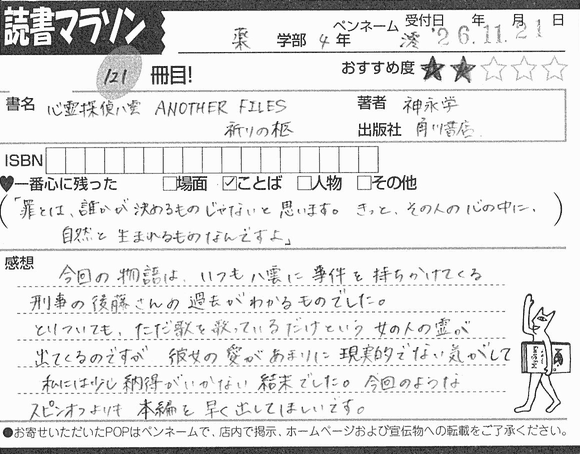 読書マラソン
薬 学部 4 年 ペンネーム 澪 受付日 年 月 日
'26.11.21
121 冊目!
おすすめ度 ★★☆☆☆
書名 心霊探偵八雲 ANOTHER FILES
祈りの柩
著者 神永学
出版社 角川書店
ISBN
♥一番心に残った □場面 ☑ことば □人物 □その他
(「罪とは、誰かが決めるものじゃないと思います。きっと、その人の心の中に、
自然と生まれるものなんですよ」)
感想
今回の物語は、いつも八雲に事件を持ちかけてくる
刑事の後藤さんの過去がわかるものでした。
とりついても、ただ歌を歌っているだけという女の人の霊が
出てくるのですが 彼女の愛があまりに現実的でない気がして
私には少し納得がいかない結末でした。今回のような
スピンオフよりも 本編を早く出してほしいです。
●お寄せいただいたPOPはペンネームで、店内で掲示、ホームページおよび宣伝物への転載をご了承ください。